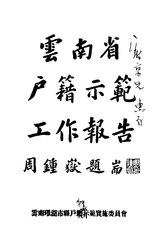 雲南省
戶籍示範
工作報告
周鍾嶽題耑
雲南環湖市縣戶籍示範實施委員會